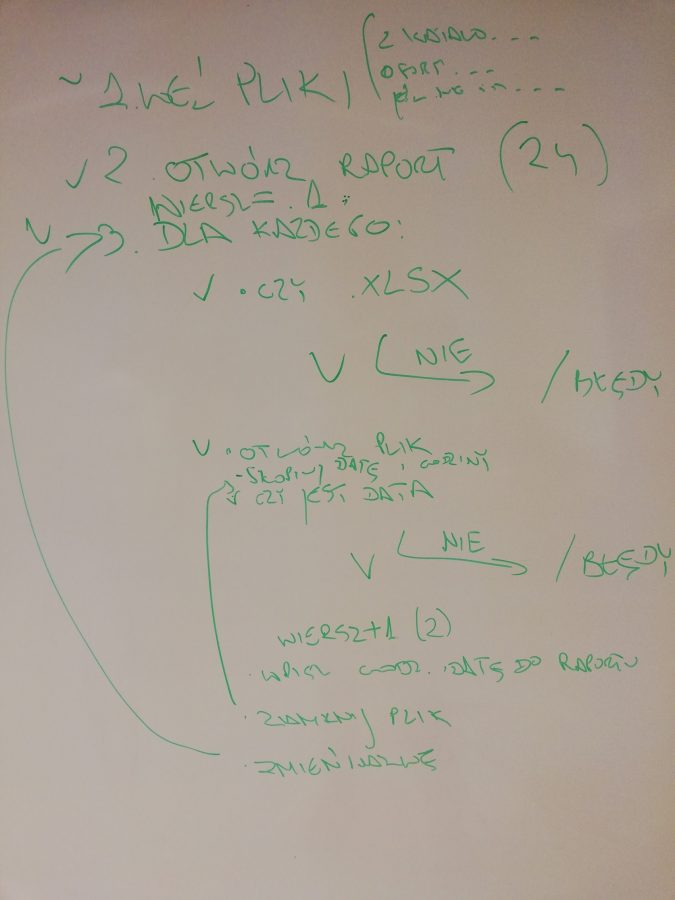 ~ 1. WEŹ PLIKI
Z KATALO. - - -
. - - -
. - - -
√ 2. OTWÓRZ RAPORT (24)
WIERSZ = 1
√ → 3. DLA KAŻDEGO:
√ • CZY .XLSX
√ NIE → / BŁĘDY
√ • OTWÓRZ PLIK
- SKOPIUJ DATĘ I GODZINY
√ CZY JEST DATA
√ NIE → / BŁĘDY
WIERSZ+1 (2)
• WPISZ GODZ. DATĘ DO RAPORTU
• ZAMKNIJ PLIK
• ZMIEŃ NAZWĘ